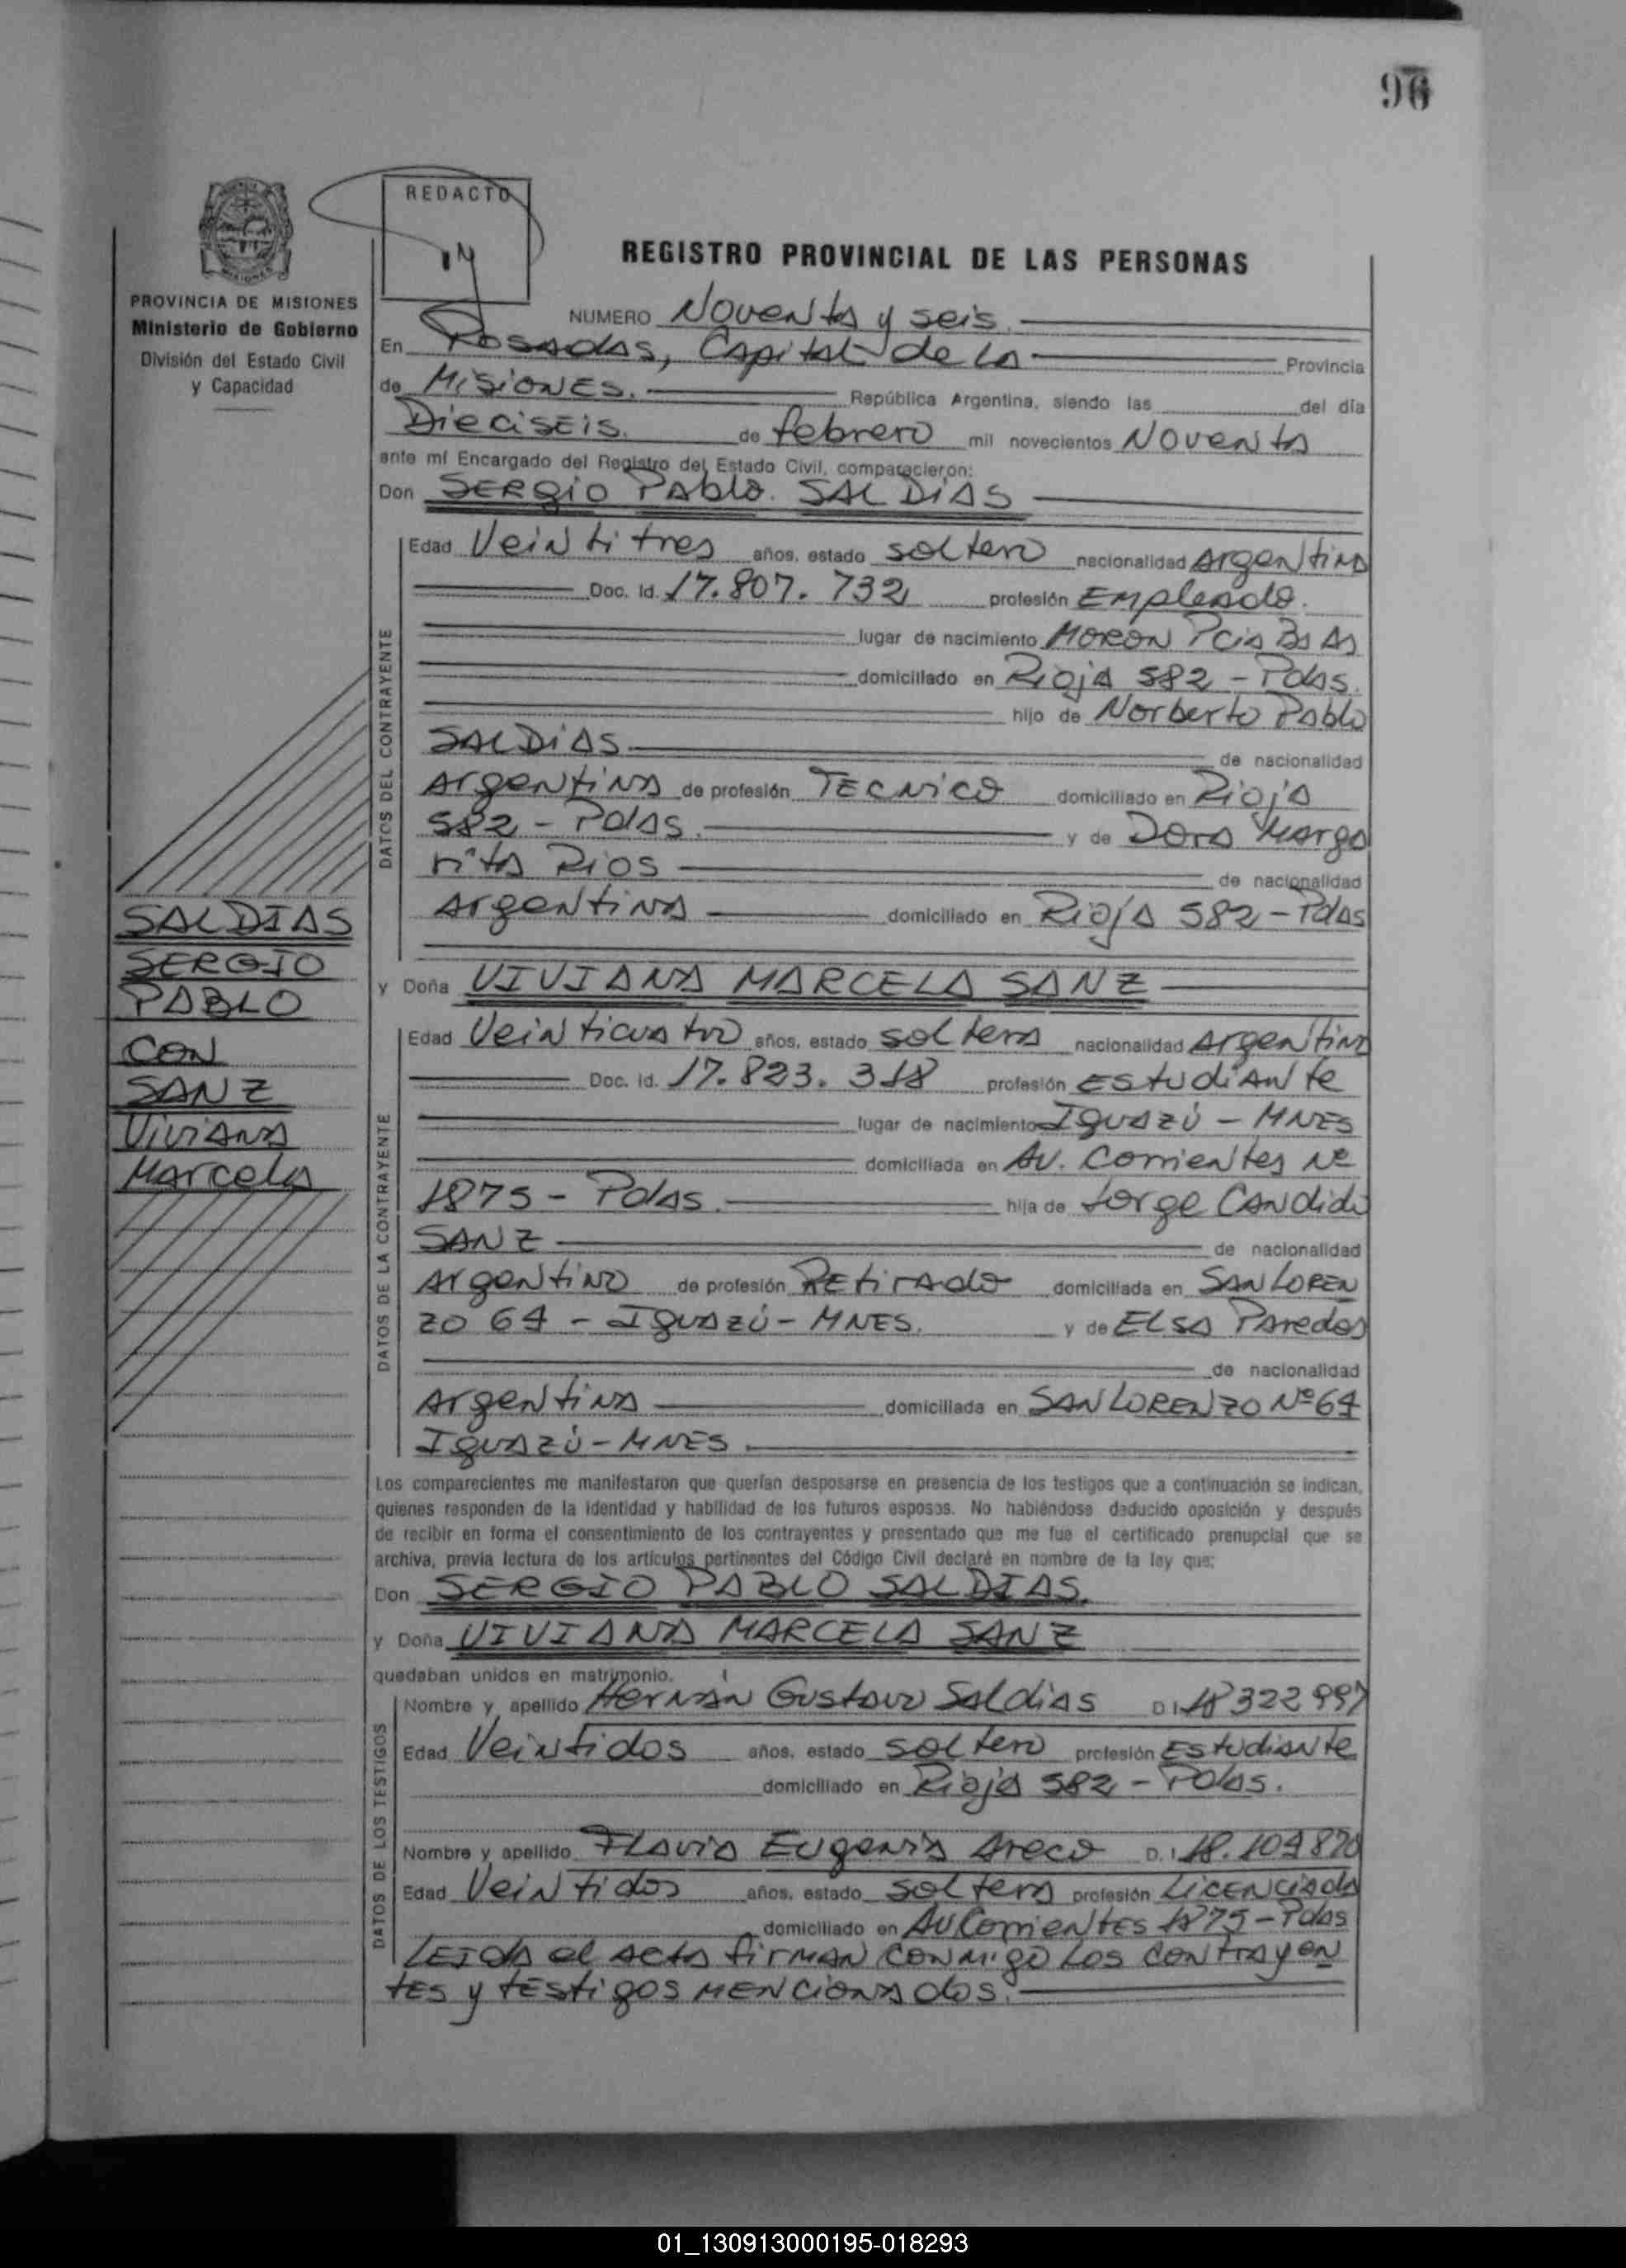 96
REDACTO
14
REGISTRO PROVINCIAL DE LAS PERSONAS
PROVINCIA DE MISIONES
Ministerio de Gobierno
División del Estado Civil
y Capacidad
NUMERO Noventa y seis.
En Posadas, Capital de la Provincia
de Misiones. República Argentina, siendo las del día
Dieciseis. de febrero mil novecientos Noventa
ante mí Encargado del Registro del Estado Civil, comparecieron:
Don SERGIO PABLO. SALDIAS
DATOS DEL CONTRAYENTE
Edad Veintitres años, estado soltero nacionalidad Argentina
Doc. Id. 17.807.732 profesión Empleado.
lugar de nacimiento MORON Pcia Bs As
domiciliado en Rioja 582 - Pdas.
hijo de Norberto Pablo
SALDIAS de nacionalidad
Argentina de profesión TECNICO domiciliado en Rioja
582 - Pdas. y de Dora Marga
rita Rios de nacionalidad
Argentina domiciliado en Rioja 582 - Pdas
SALDIAS
SERGIO
PABLO
CON
SANZ
Viviana
Marcela
y Doña VIVIANA MARCELA SANZ
DATOS DE LA CONTRAYENTE
Edad Veinticuatro años, estado soltera nacionalidad Argentina
Doc. Id. 17.823.318 profesión Estudiante
lugar de nacimiento Iguazú - MNES
domiciliada en Av. Corrientes Nº
1875 - Pdas. hija de Jorge Candido
SANZ de nacionalidad
Argentino de profesión Retirado domiciliada en SAN LOREN
ZO 64 - Iguazú - MNES. y de ELSA Paredes
de nacionalidad
Argentina domiciliada en SAN LORENZO Nº 64
Iguazú - MNES.
Los comparecientes me manifestaron que querían desposarse en presencia de los testigos que a continuación se indican,
quienes responden de la identidad y habilidad de los futuros esposos. No habiéndose deducido oposición y después
de recibir en forma el consentimiento de los contrayentes y presentado que me fue el certificado prenupcial que se
archiva, previa lectura de los artículos pertinentes del Código Civil declaré en nombre de la ley que:
Don SERGIO PABLO SALDIAS.
y Doña VIVIANA MARCELA SANZ
quedaban unidos en matrimonio.
DATOS DE LOS TESTIGOS
Nombre y apellido Hernán Gustavo Saldias D I 18322997
Edad Veintidos años, estado soltero profesión Estudiante
domiciliado en Rioja 582 - Pdas.
Nombre y apellido Flavia Eugenia Areco D. I 18.104870
Edad Veintidos años, estado soltera profesión Licenciada
domiciliado en Av Corrientes 1875 - Pdas
Leida el acta firman conmigo los contrayen
tes y testigos mencionados.
01_130913000195-018293